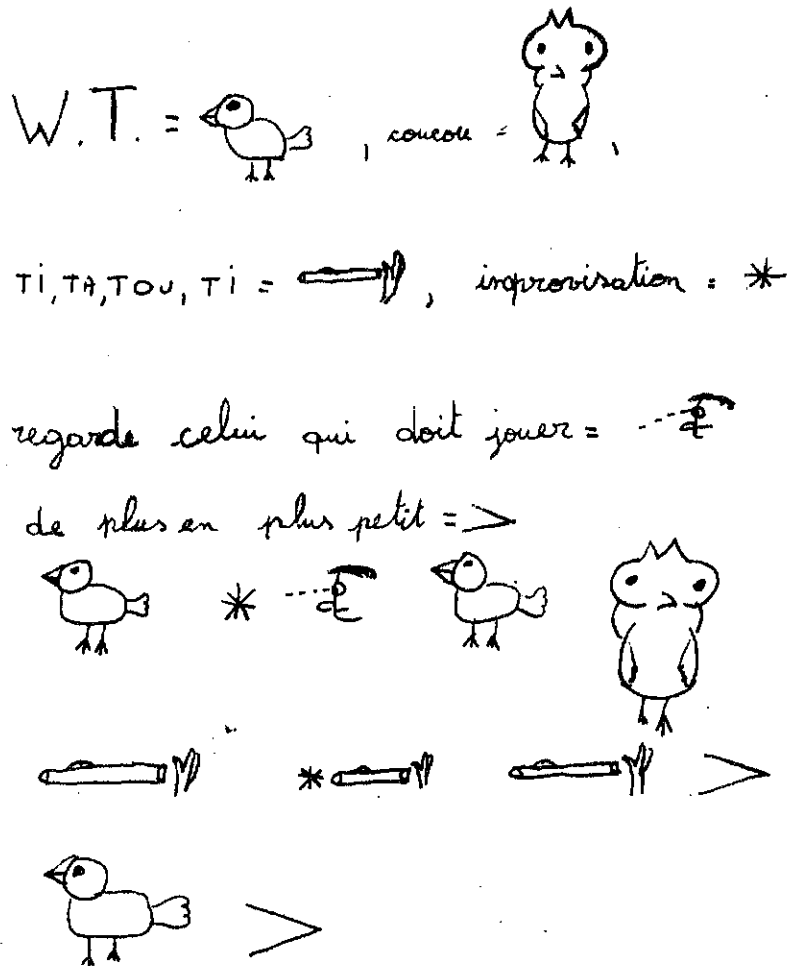 W.T. = , coucou = ,
Ti, TA, TOU, Ti = , improvisation : *
regarde celui qui doit jouer =
de plus en plus petit = >
*
* >
>